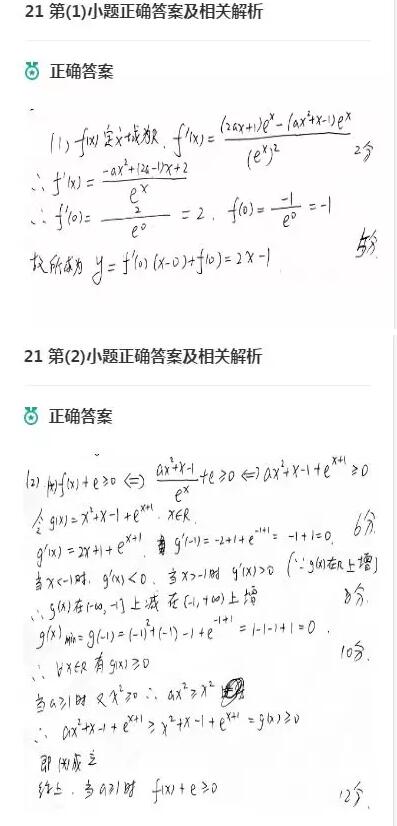 21 第(1)小题正确答案及相关解析
正确答案
(1) f(x)定义域为R. f'(x)=\frac{(2ax+1)e^x-(ax^2+x-1)e^x}{(e^x)^2} 2分
∴f'(x)=\frac{-ax^2+(2a-1)x+2}{e^x}
∴f'(0)=\frac{2}{e^0}=2. f(0)=\frac{-1}{e^0}=-1
故所求为 y=f'(0)(x-0)+f(0)=2x-1 5分
21 第(2)小题正确答案及相关解析
正确答案
(2). f(x)+e≥0⇔\frac{ax^2+x-1}{e^x}+e≥0⇔ax^2+x-1+e^{x+1}≥0
令g(x)=x^2+x-1+e^{x+1}. x∈R.
g'(x)=2x+1+e^{x+1}. g'(-1)=-2+1+e^{-1+1}=-1+1=0. 6分
当x<-1时. g'(x)<0. 当x>-1时 g'(x)>0 (∵g'(x)在R上增)
∴g(x)在(-∞,-1]上减 在(-1,+∞)上增 8分
g(x)min=g(-1)=(-1)^2+(-1)-1+e^{-1+1}=1-1-1+1=0.
∴∀x∈R 有g(x)≥0 10分.
当a≥1时 又x^2≥0 ∴ax^2≥x^2
∴ax^2+x-1+e^{x+1}≥x^2+x-1+e^{x+1}=g(x)≥0
即(*)成立
综上. 当a≥1时 f(x)+e≥0 12分.